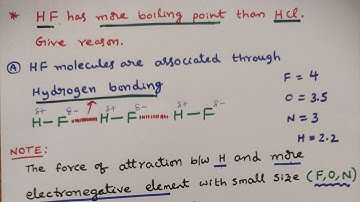 * HF has more boiling point than HCl.
Give reason.
Ⓐ HF molecules are associated through
Hydrogen bonding
F = 4
O = 3.5
N = 3
H = 2.2
δ+ δ- δ+ δ- δ+ δ-
H-F H-F H-F
NOTE:
The force of attraction b/w H and more
electronegative element with small size (F,O,N)